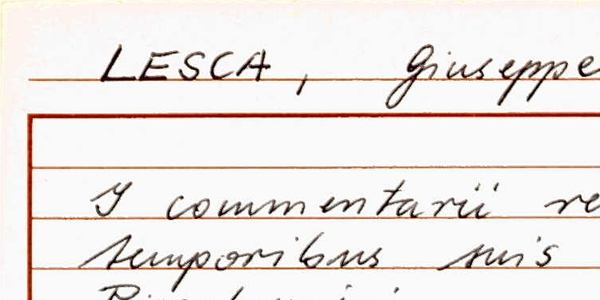 LESCA, Giuseppe
I commentarii re
temporibus suis